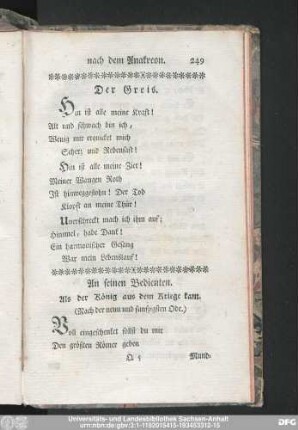 nach dem Anakreon. 249
Der Greis.
Hin ist alle meine Kraft!
Alt und schwach bin ich,
Wenig nur erquicket mich
Scherz und Rebensaft!
Hin ist alle meine Zier!
Meiner Wangen Roth
Ist hinweggeflohn! Der Tod
Klopft an meine Thür!
Unerschreckt mach ich ihm auf;
Himmel, habe Dank!
Ein harmonischer Gesang
War mein Lebenslauf!
An seinen Bedienten.
Als der König aus dem Kriege kam.
(Nach der neun und funfzigsten Ode.)
Voll eingeschenket sollst du mir
Den größten Römer geben
Q 5 Mund-
Universitäts- und Landesbibliothek Sachsen-Anhalt
urn:nbn:de:gbv:3:1-1192015415-193453312-15
DFG